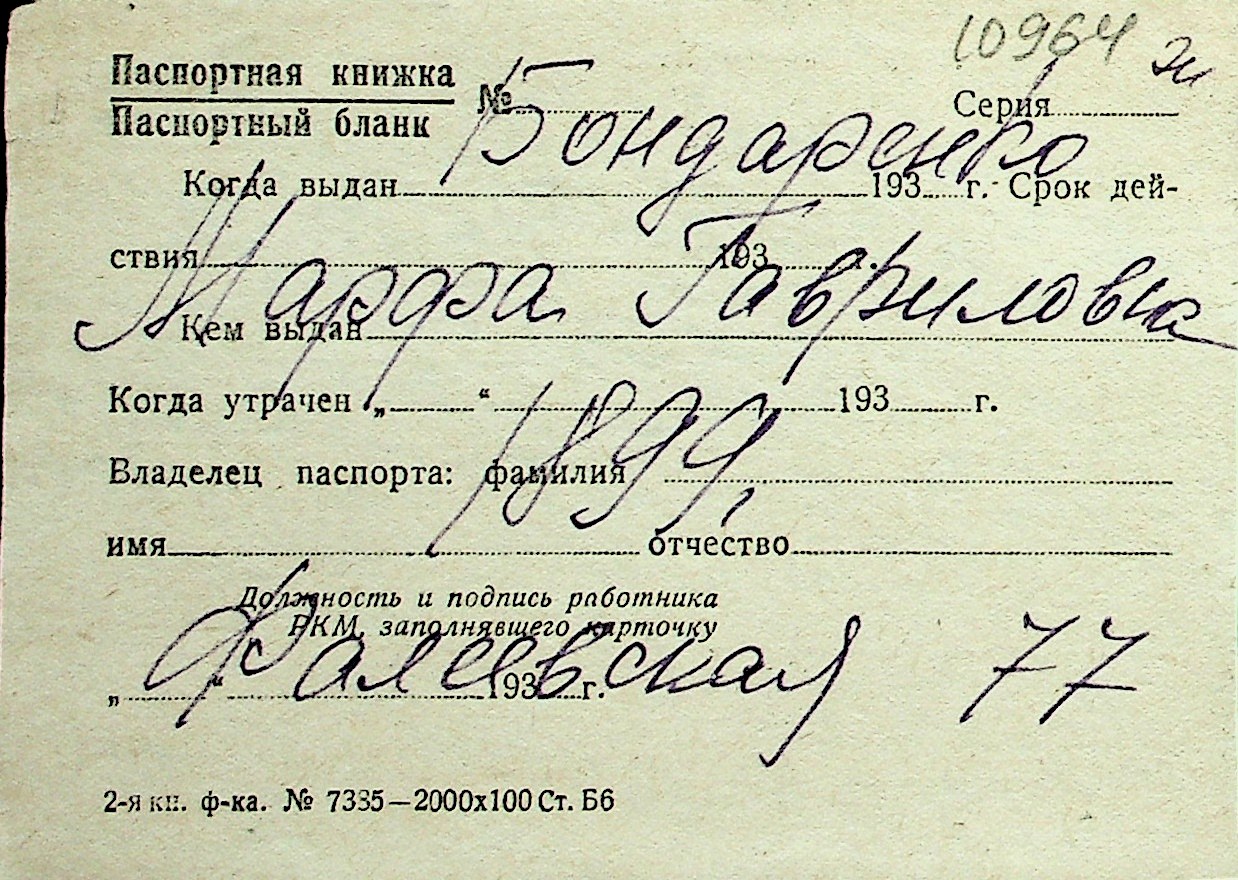 10964 эи
Паспортная книжка
Паспортный бланк
№ Серия
Бондаренко
Когда выдан 193 г. Срок дей-
ствия 193 г.
Марфа Гавриловна
Кем выдан
Когда утрачен „ “ 193 г.
1899,
Владелец паспорта: фамилия
имя отчество
Должность и подпись работника
РКМ, заполнявшего карточку
Фалеевская 77
„ “ 193 г.
2-я кн. ф-ка. № 7335—2000x100 Ст. Б6